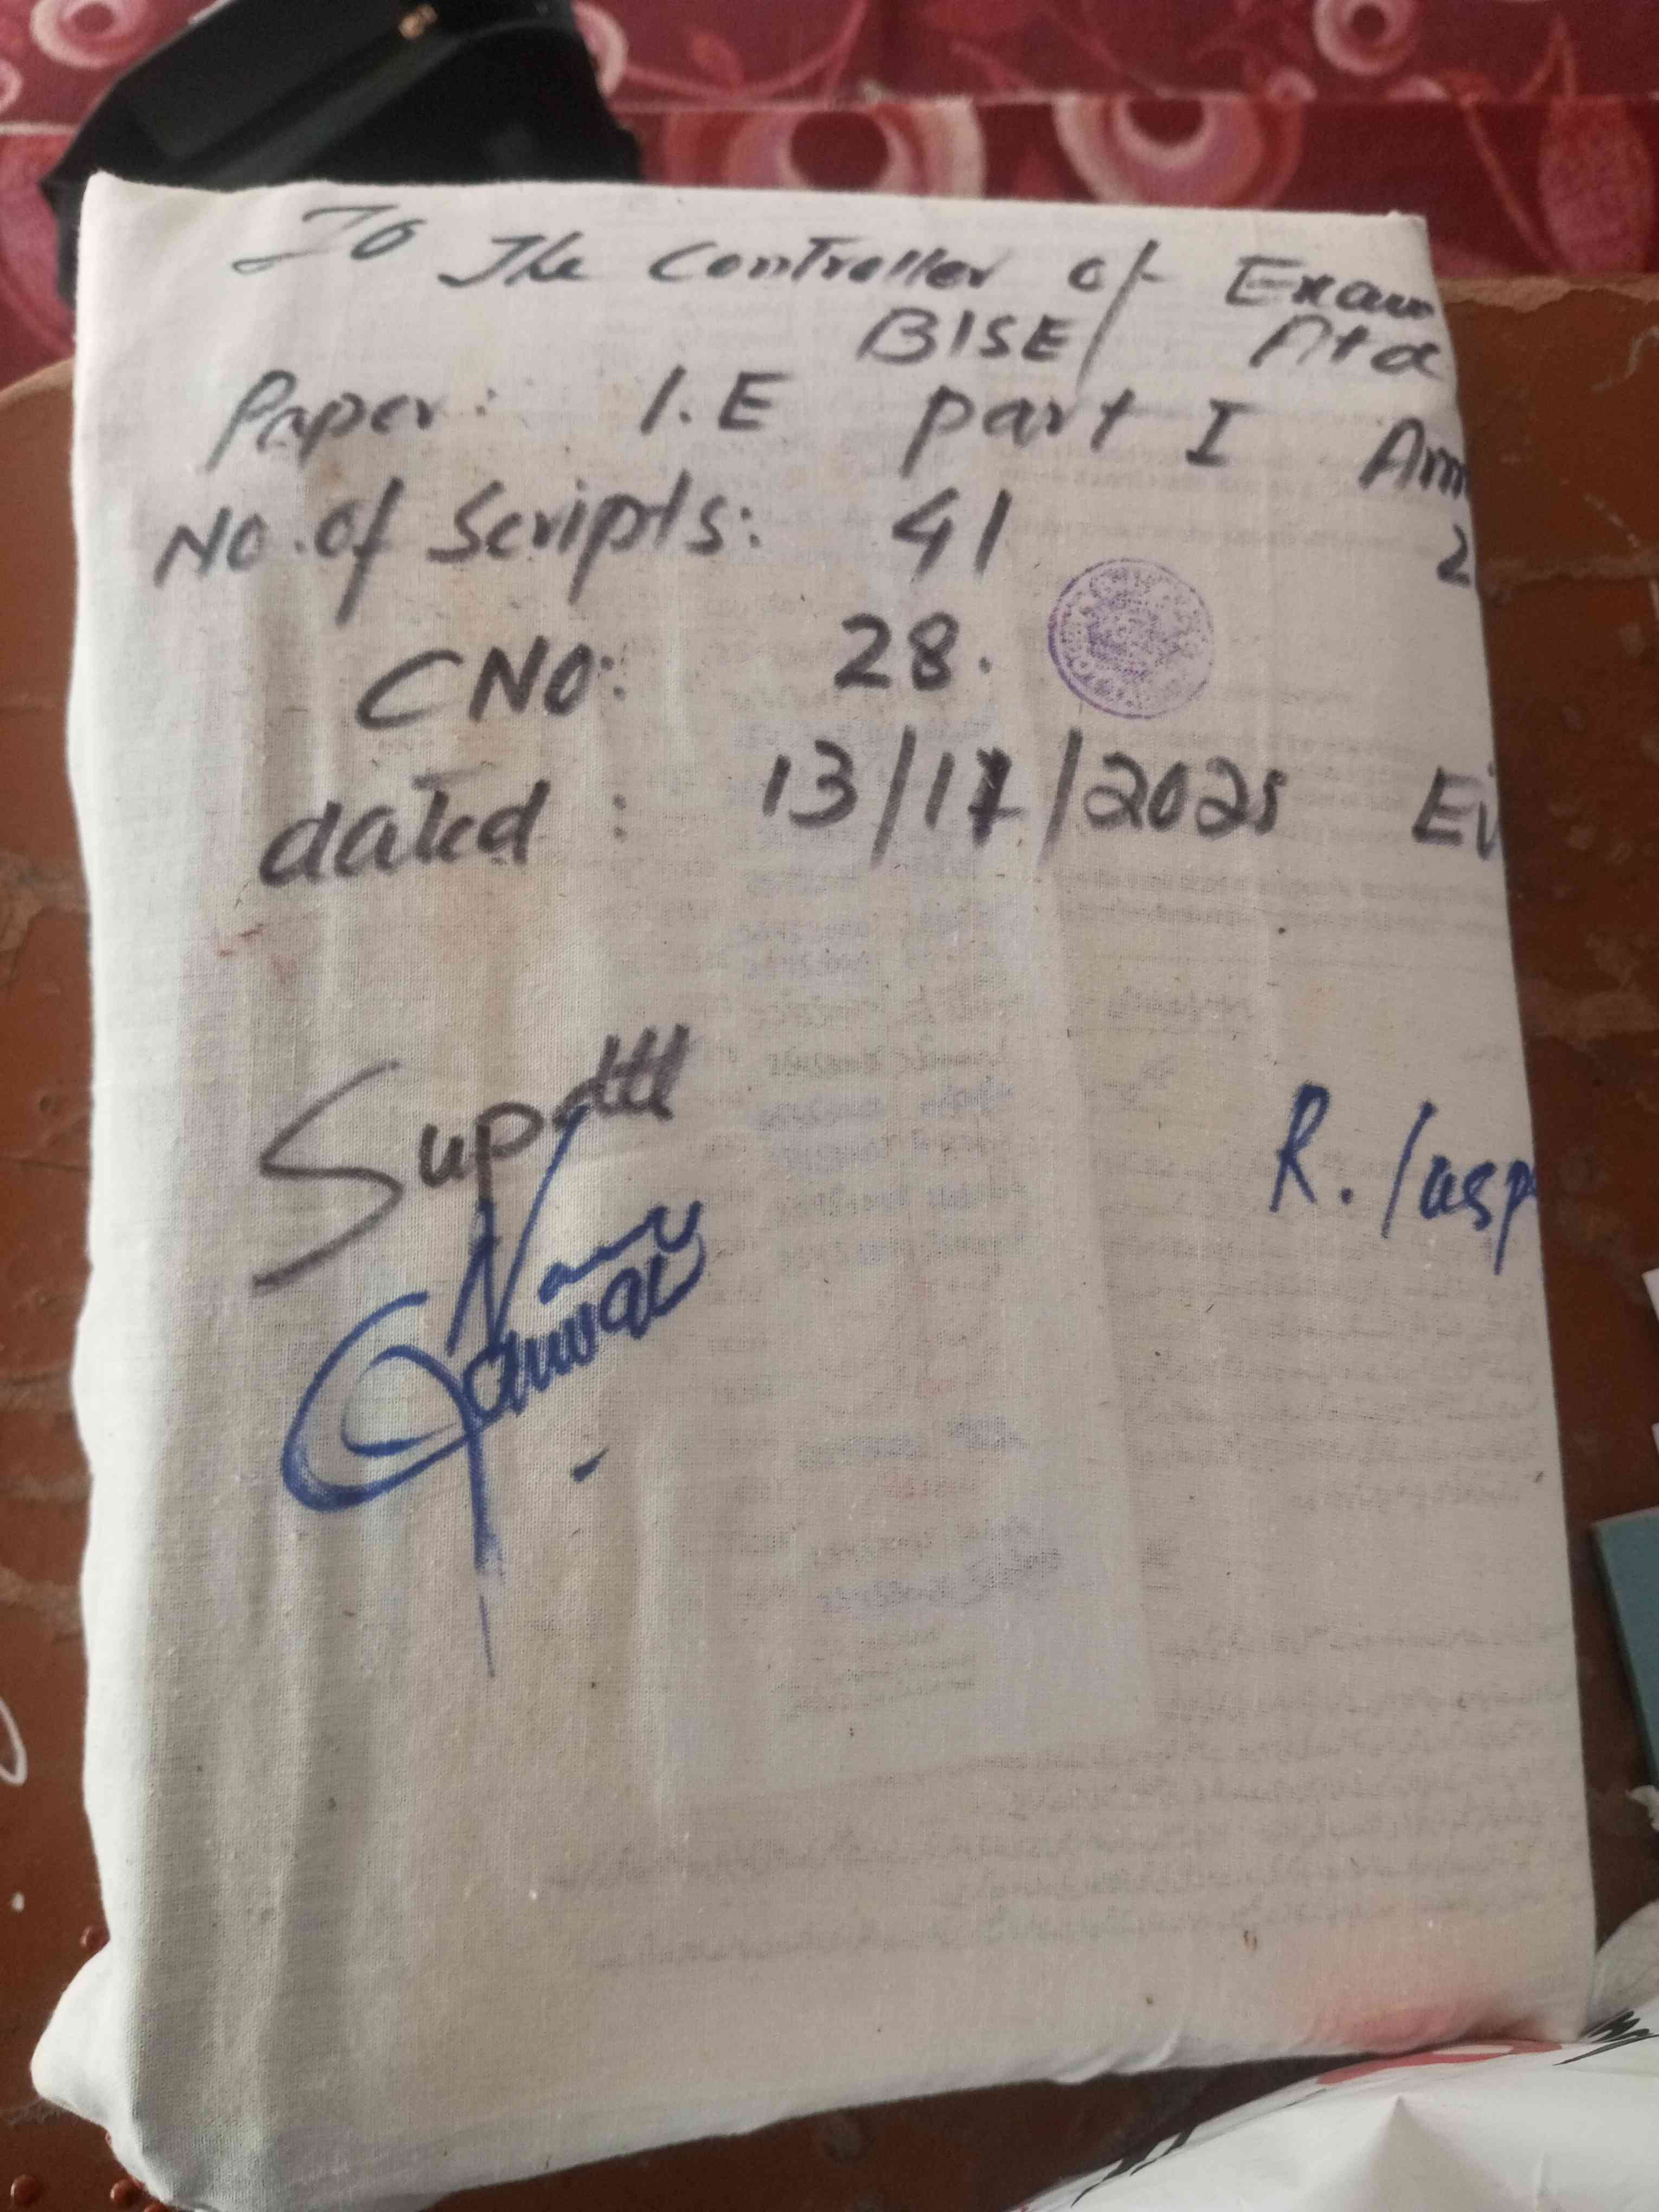 To The Controller of Exam
BISE/ Ata
Paper: I.E part I Ann
No. of Scripts: 41 2
CNO: 28.
dated: 13/11/2025 Ev
Supdtt
R. Insp